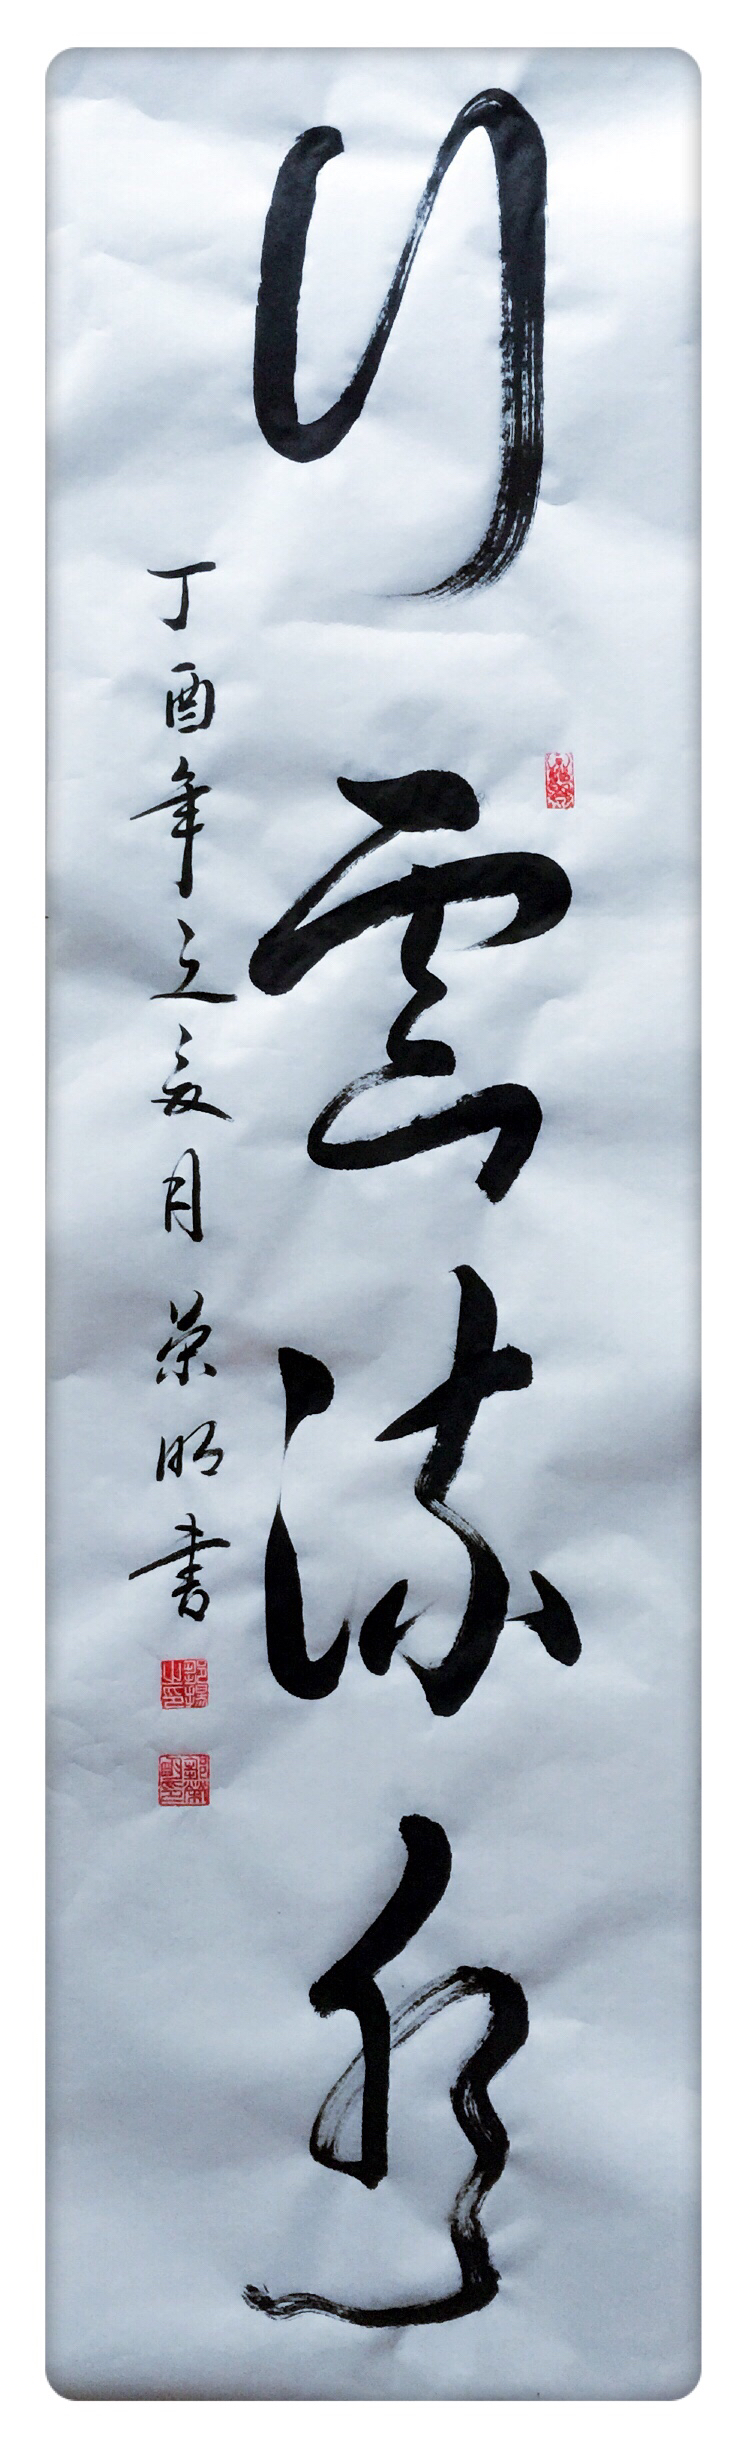 行雲流水
丁酉年之夏月 荣明書